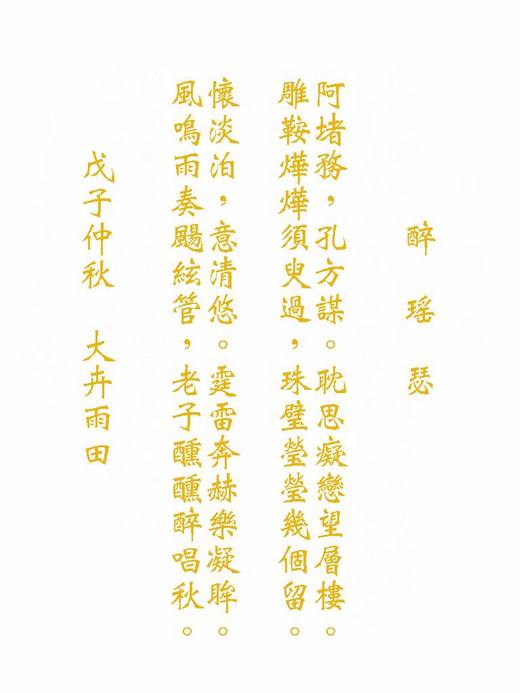 醉瑶瑟
阿堵務，孔方謀。耽思癡戀望層樓。
雕鞍燁燁須臾過，珠璧瑩瑩幾個留。
懷淡泊，意清悠。霆雷奔赫樂凝眸。
風鳴雨奏颺絃管，老子醺醺醉唱秋。
戊子仲秋 大卉雨田